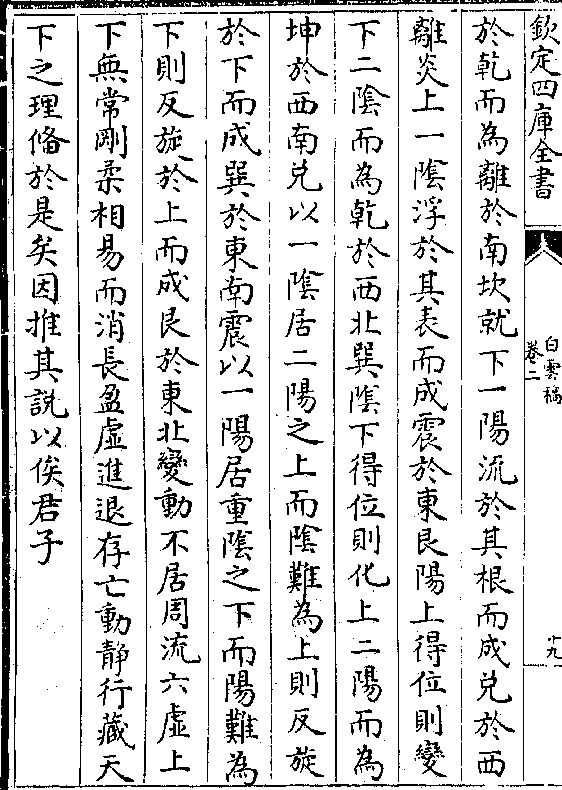 欽定四庫全書
白雲稿
卷二
十九
於乾而為離於南坎就下一陽流於其根而成兌於西
離炎上一陰浮於其表而成震於東艮陽上得位則變
下二陰而為乾於西北巽陰下得位則化上二陽而為
坤於西南兌以一陰居二陽之上而陰難為上則反旋
於下而成巽於東南震以一陽居重陰之下而陽難為
下則反旋於上而成艮於東北變動不居周流六虛上
下無常剛柔相易而消長盈虛進退存亡動靜行藏天
下之理俻於是矣因推其說以俟君子